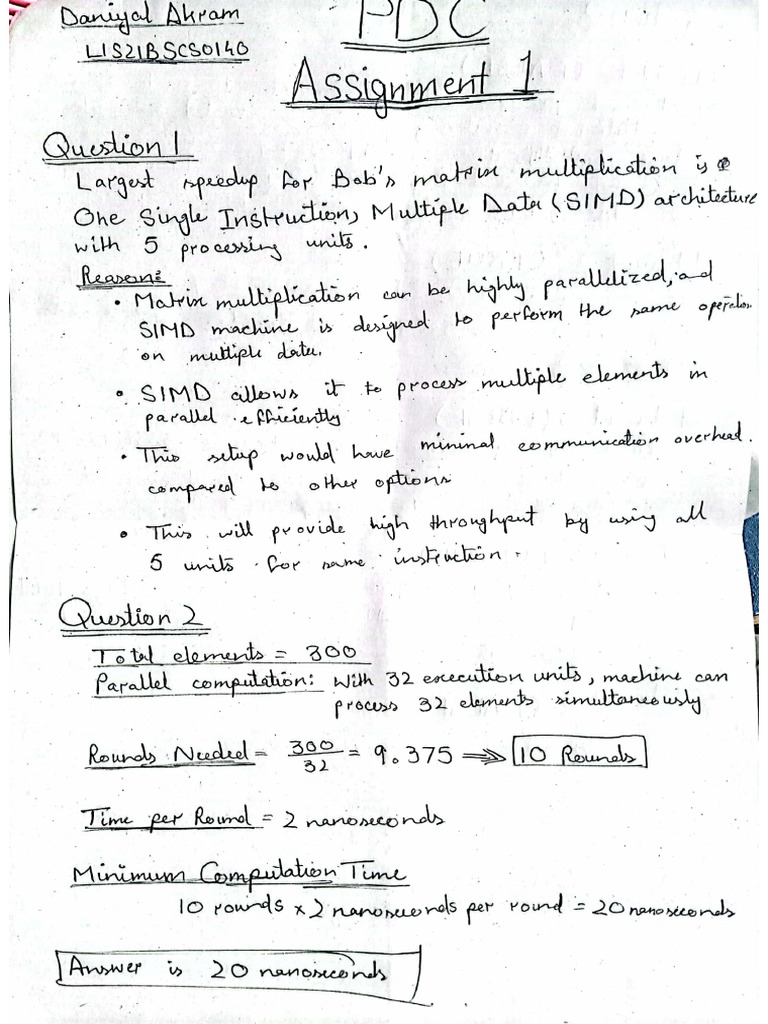 Daniyal Akram
L1S21BSCS0140
PDC
Assignment 1
Question 1
Largest speedup for Bob's matrix multiplication is
One Single Instruction, Multiple Data (SIMD) architecture
with 5 processing units.
Reason:
• Matrix multiplication can be highly parallelized, and
SIMD machine is designed to perform the same operation
on multiple data.
• SIMD allows it to process multiple elements in
parallel efficiently
• This setup would have mininal communication overhead.
compared to other options
• This will provide high throughput by using all
5 units for same instruction.
Question 2
Total elements = 300
Parallel computation: With 32 execution units, machine can
process 32 elements simultaneously
Rounds Needed = 300/32 = 9.375 ⟹ 10 Rounds
Time per Round = 2 nanoseconds
Minimum Computation Time
10 rounds × 2 nanoseconds per round = 20 nanoseconds
Answer is 20 nanoseconds